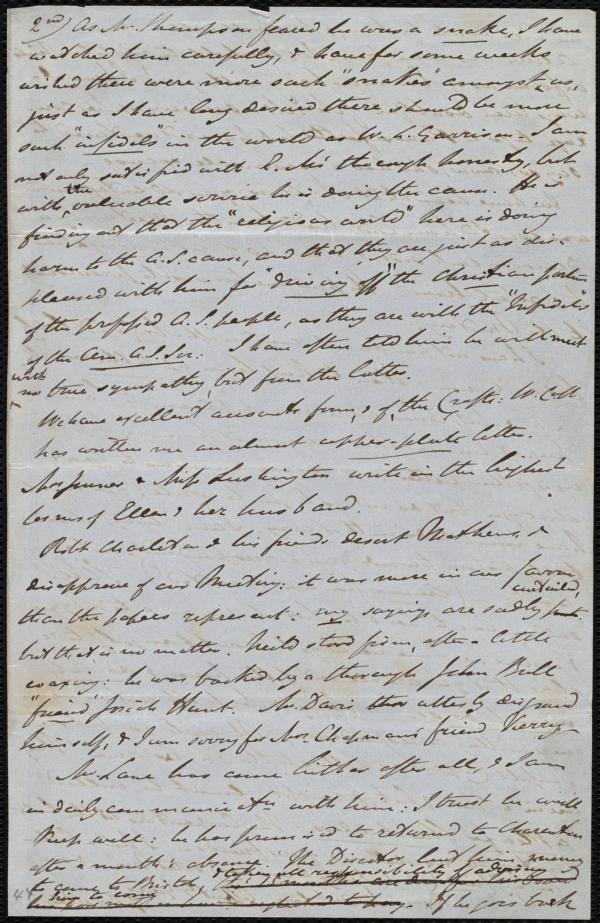 2nd) As Mr. Thompson feared he was a snake, I have
watched him carefully, & have for some weeks
wished there were more such "snakes" amongst us,
just as I have long desired there should be more
such "infidels" in the world as W. L. Garrison. I am
not only satisfied with L. M's thorough honesty, but
with the valuable service he is doing the cause. He is
finding out that the "religious world" here is doing
harm to the A.S. cause, and that they are just as dis-
pleased with him for "driving off" the Christian portion
of the professed A. S. people, as they are with the "Infidels"
of the Am. A. S. Soc: I have often told him he will meet
with no true sympathy, but from the latter.
We have excellent accounts from, & of, the Crafts: W. Craft
has written me an almost copper-plate letter.
Mrs & Miss Lushington write in the highest
terms of Ellen & her husband.
Robt Charleton & his friends desert Mathews, &
disapprove of our Meeting: it was more in our favour
than the papers represent: my sayings are sadly curtailed,
but that is no matter. held stood firm, after a little
coaxing: he was backed by a thorough John Bull
"friend" Josiah Hunt. Mr. Davis utterly disgraced
himself, & I am sorry for Mrs. Chapman's friend
Mr. Lane has come hither after all, & I am
in daily communicatn with him: I trust he will
keep well: he has promised to returned to Charenton
after a month's absence. The Director lent him money
to come to Bristol, & taking all responsibility of advising
him to come If he goes back